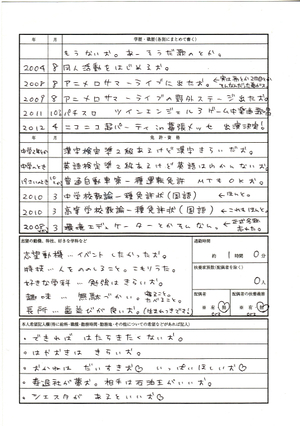 年 月 学歴・職歴(各別にまとめて書く)
もうないぉ。あーそうだ歌のとか。
2004 8 同人活動をはじめるぉ。
2008 8 アニメロサマーライブに出たぉ。
2009 8 アニメロサマーライブの野外ステージ出たぉ。
ツインエンジェル3
2012 4 ニコニコ超パーティin幕張メッセ 出演決定!
年 月 免許・資格
漢字検定準2級あるけど漢字きらいだぉ。
英語検定準2級あるけど英語はわかんないぉ。
普通自動車第一種運転免許 MTもOKだぉ。
2010 3 中学校教諭一種免許状(国語) ←ほんと。
2010 3 高等学校教諭一種免許状(国語) ←これもほんと。
環境エデュケーターとかそんなん。
志望の動機、特技、好きな学科など
志望動機…イベントしたかったぉ。
特技…人をののしること。こもりうた。
好きな学科…勉強はきらいぉ。
趣味…無駄づかい。
長所…歯並びが良いぉ。
通勤時間
約 1時間 0分
扶養家族数(配偶者を除く)
0人
配偶者
有 無
配偶者の扶養義務
有 無
本人希望記入欄(特に給料・職種・勤務時間・勤務地・その他についての希望などがあれば記入)
・できれば はたらきたくないぉ。
・はかまは きらいぉ。
・おかねは だいすきぉ♡ いっぱいほしいぉ♡
・寿退社が夢ぉ。相手は石油王がいいぉ。
・シエスタが あるといいぉ♡